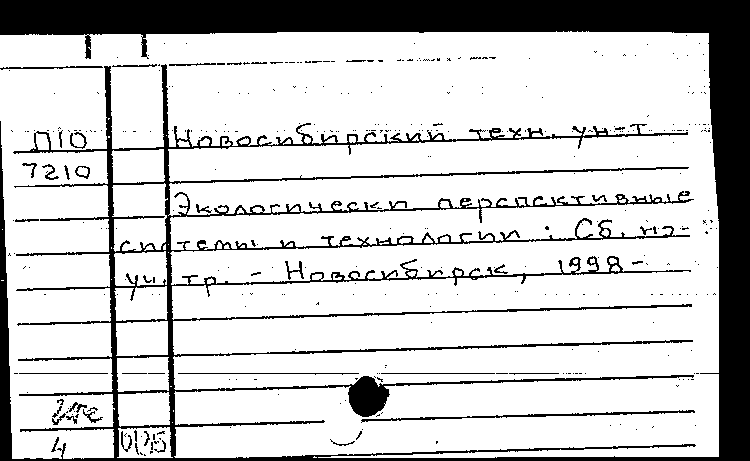 П10
7210
Новосибирский техн. ун-т
Экологически перспективные
системы и технологии : Сб. на-
уч. тр. - Новосибирск, 1998-
4